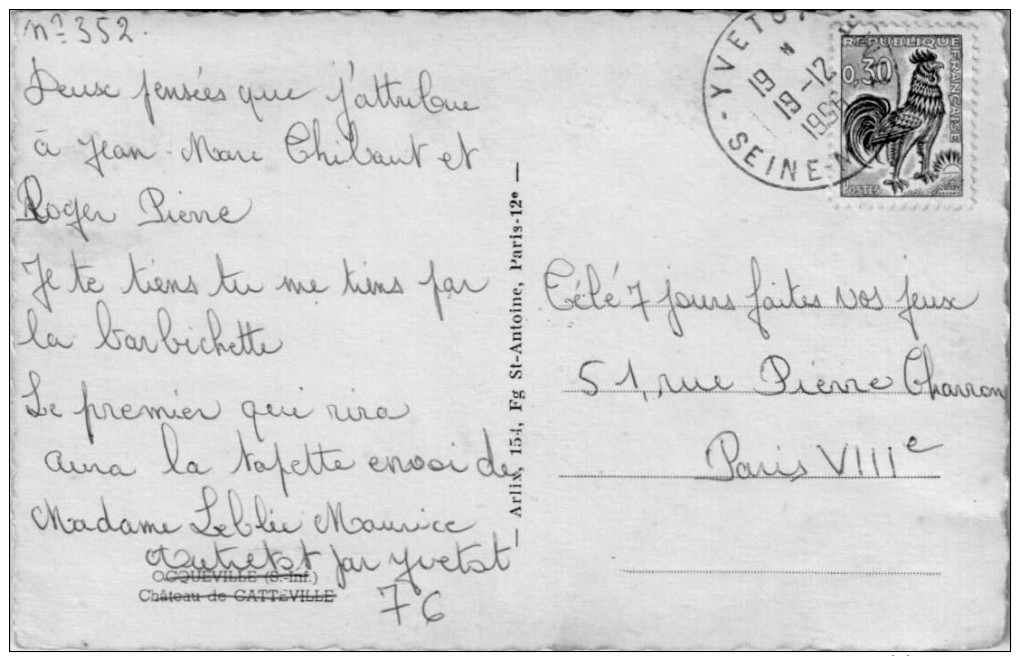 n° 352.
Deux pensées que j'attribue
à Jean-Marc Thibaut et
Roger Pierre
Je te tiens tu me tiens par
la barbichette
Le premier qui rira
aura la tapette envoi de
Madame Leblie Maurice
Autretot par Yvetot
76
OCQUEVILLE (S.-Inf.)
Château de CATTEVILLE
Arlix, 154, Fg St-Antoine, Paris-12e
YVETO
19
19 -12
196
SEINE-M
REPUBLIQUE
FRANCAISE
0,30
POSTES
Télé 7 jours faites vos jeux
51, rue Pierre Charron
Paris VIIIe